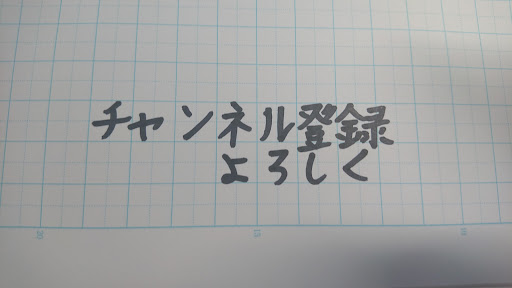 チャンネル登録
よろしく